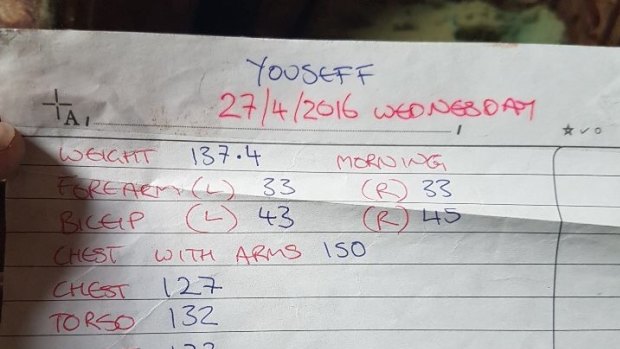 YOUSEFF
27/4/2016 WEDNESDAY
A,
WEIGHT 137.4 MORNING
FOREARM (L) 33 (R) 33
BICEIP (L) 43 (R) 45
CHEST WITH ARMS 150
CHEST 127
TORSO 132